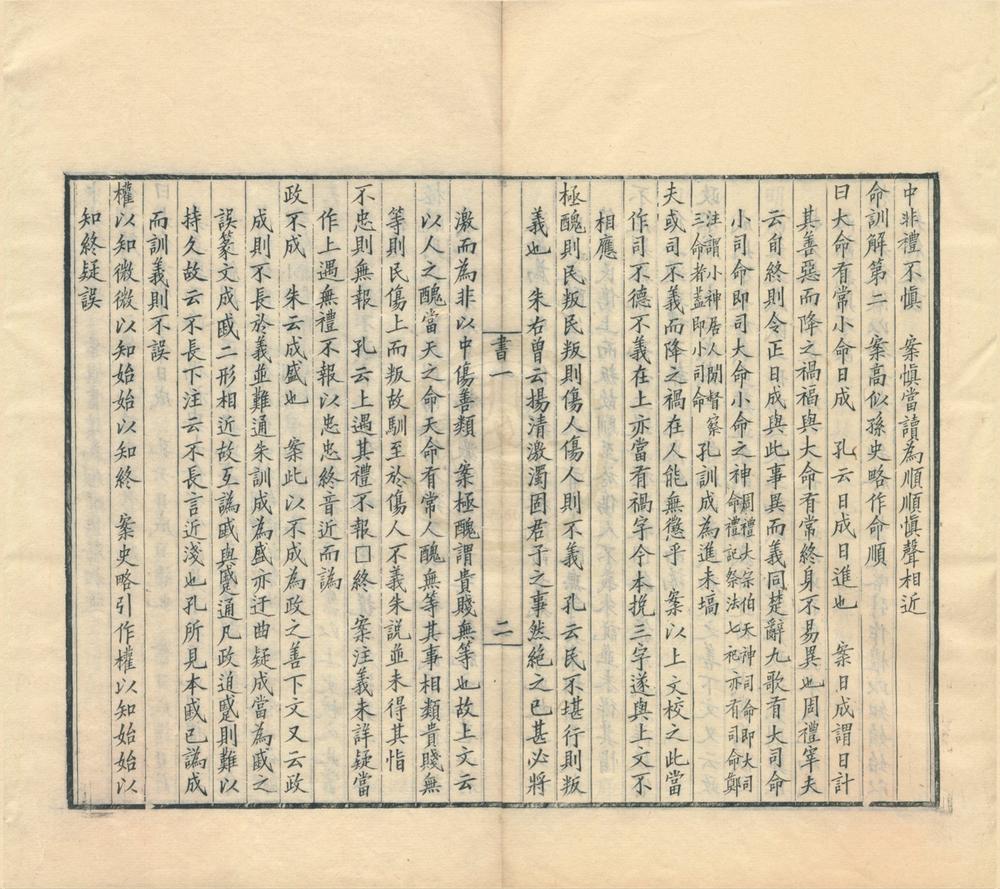 中非禮不愼　案愼當讀為順順愼聲相近
命訓解第二　案高似孫史略作命順
曰大命有常小命日成　孔云日成日進也　案日成謂日計
其善惡而降之禍福與大命有常終身不易異也周禮宰夫
云旬終則令正日成與此事異而義同楚辭九歌有大司命
小司命即司大命小命之神周禮大宗伯天神司命即大司
命禮記祭法七祀亦有司命鄭
注謂小神居人閒督察
三命者蓋即小司命孔訓成為進未塙
夫或司不義而降之禍在人能無懲乎　案以上文校之此當
作司不德不義在上亦當有禍字今本挩三字遂與上文不
相應
極醜則民叛民叛則傷人傷人則不義　孔云民不堪行則叛
義也　朱右曾云揚清激濁固君子之事然絶之已甚必將
書一
二
激而為非以中傷善類　案極醜謂貴賤無等也故上文云
以人之醜當天之命天命有常人醜無等其事相類貴賤無
等則民傷上而叛故馴至於傷人不義朱說並未得其恉
不忠則無報　孔云上遇其禮不報□終　案注義未詳疑當
作上遇無禮不報以忠忠終音近而譌
政不成　朱云成盛也　案此以不成為政之善下文又云政
成則不長於義並難通朱訓成為盛亦迂曲疑成當為戚之
誤篆文成戚二形相近故互譌戚與蹙通凡政迫蹙則難以
持久故云不長下注云不長言近淺也孔所見本戚已譌成
而訓義則不誤
權以知微微以知始始以知終　案史略引作權以知始始以
知終疑誤